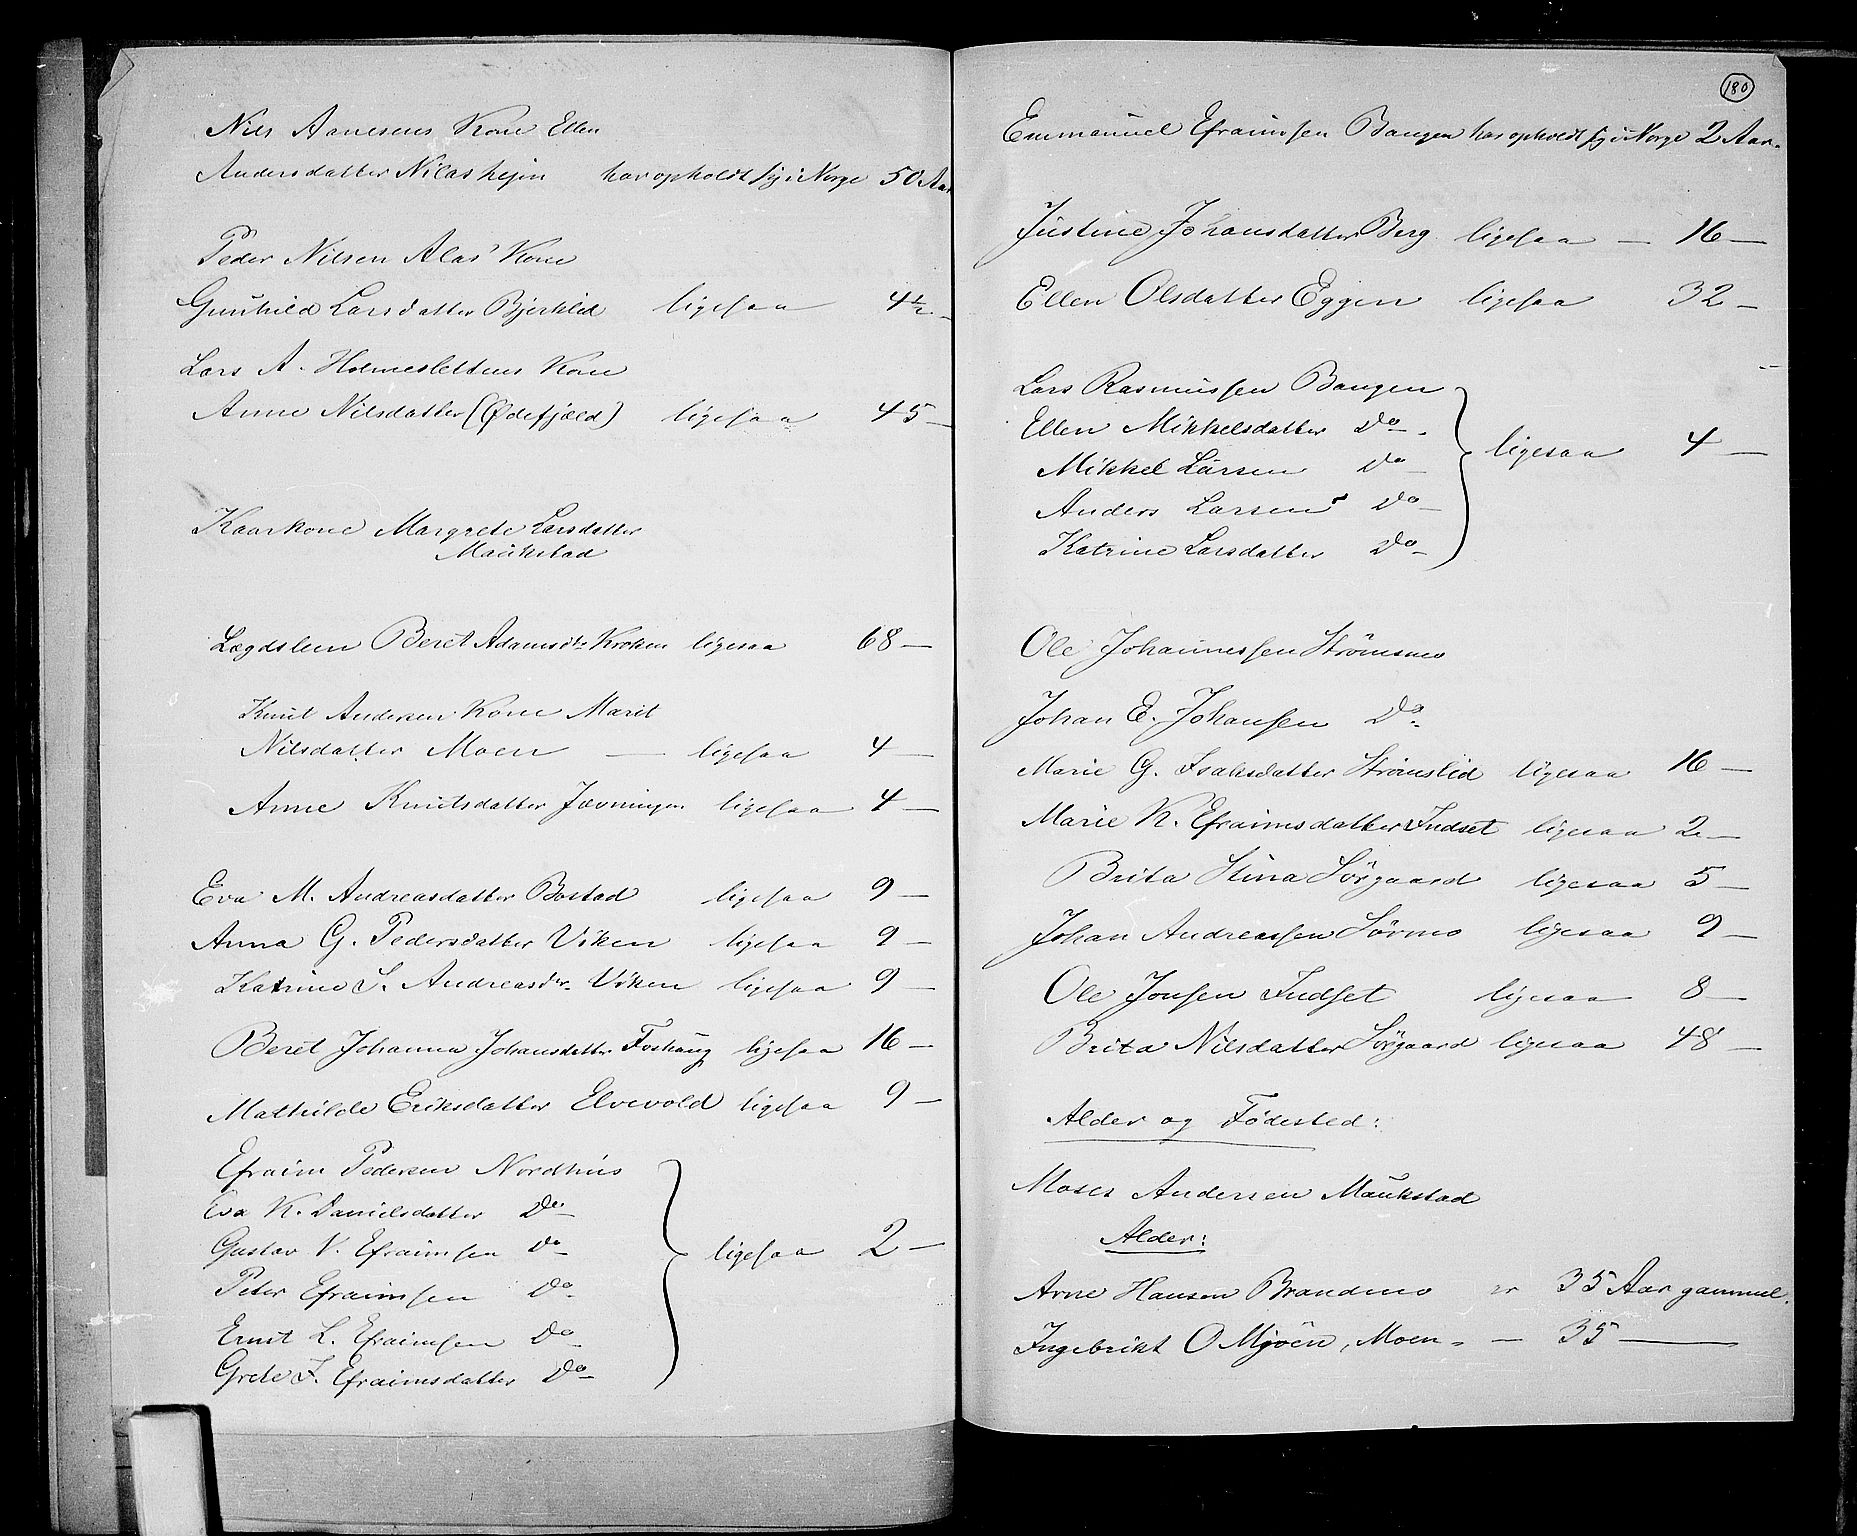 Nils Arnesens Kone Ellen
Andersdatter Nilashejen har opholdt sig i Norge 50 Aar
Peder Nilsen Alas' Kone
Gunhild Larsdatter Bjerklid ligesaa 4½ -
Lars A. Holmeslettens Kone
Anne Nilsdatter (Ødefjæld) ligesaa 45 -
Kaarkone Margrete Larsdatter
Maukstad
Lægdslem Beret Adamsdtr Kroken ligesaa 68 -
Knut Andersen Kone Marit
Nilsdatter Moen — ligesaa 4 -
Anne Knutsdatter Jævningen ligesaa 4 -
Eva M. Andreasdatter Bostad ligesaa 9 -
Anna G. Pedersdatter Viken ligesaa 9 -
Katrine S. Andreasdr. Viken ligesaa 9 -
Beret Johanna Johansdatter Foshaug ligesaa 16 -
Mathilde Eriksdatter Elvevold ligesaa 9 -
Efraim Pedersen Nordhus
Eva K. Danielsdatter Do
Gustav V. Efraimsen Do
Peter Efraimsen Do
Ernst L. Efraimsen Do
Grete F. Efraimsdatter Do
ligesaa 2 -
180
Emmanuel Efraimsen Bangen har opholdt sig i Norge 2 Aar.
Justine Johansdatter Berg ligesaa — 16 -
Ellen Olsdatter Eggen ligesaa 32 -
Lars Rasmussen Bangen
Ellen Mikkelsdatter Do
Mikkel Larsen Do
Anders Larsen Do
Katrine Larsdatter Do
ligesaa 4 -
Ole Johannessen Strömsmo
Johan E. Johansen Do
Marie G. Isaksdatter Strömslid ligesaa 16 -
Marie K. Efraimsdatter Indset ligesaa 2 -
Brita Stina Sörgaard ligesaa 5 -
Johan Andreassen Sörmo ligesaa 9 -
Ole Jonsen Indset ligesaa 8 -
Brita Nilsdatter Sörgaard ligesaa 48 -
Alder og Födested:
Moses Andersen Maukstad
Alder:
Arne Hansen Brandmo er 35 Aar gammel.
Ingebrikt O Mjöen, Moen - — 35 —